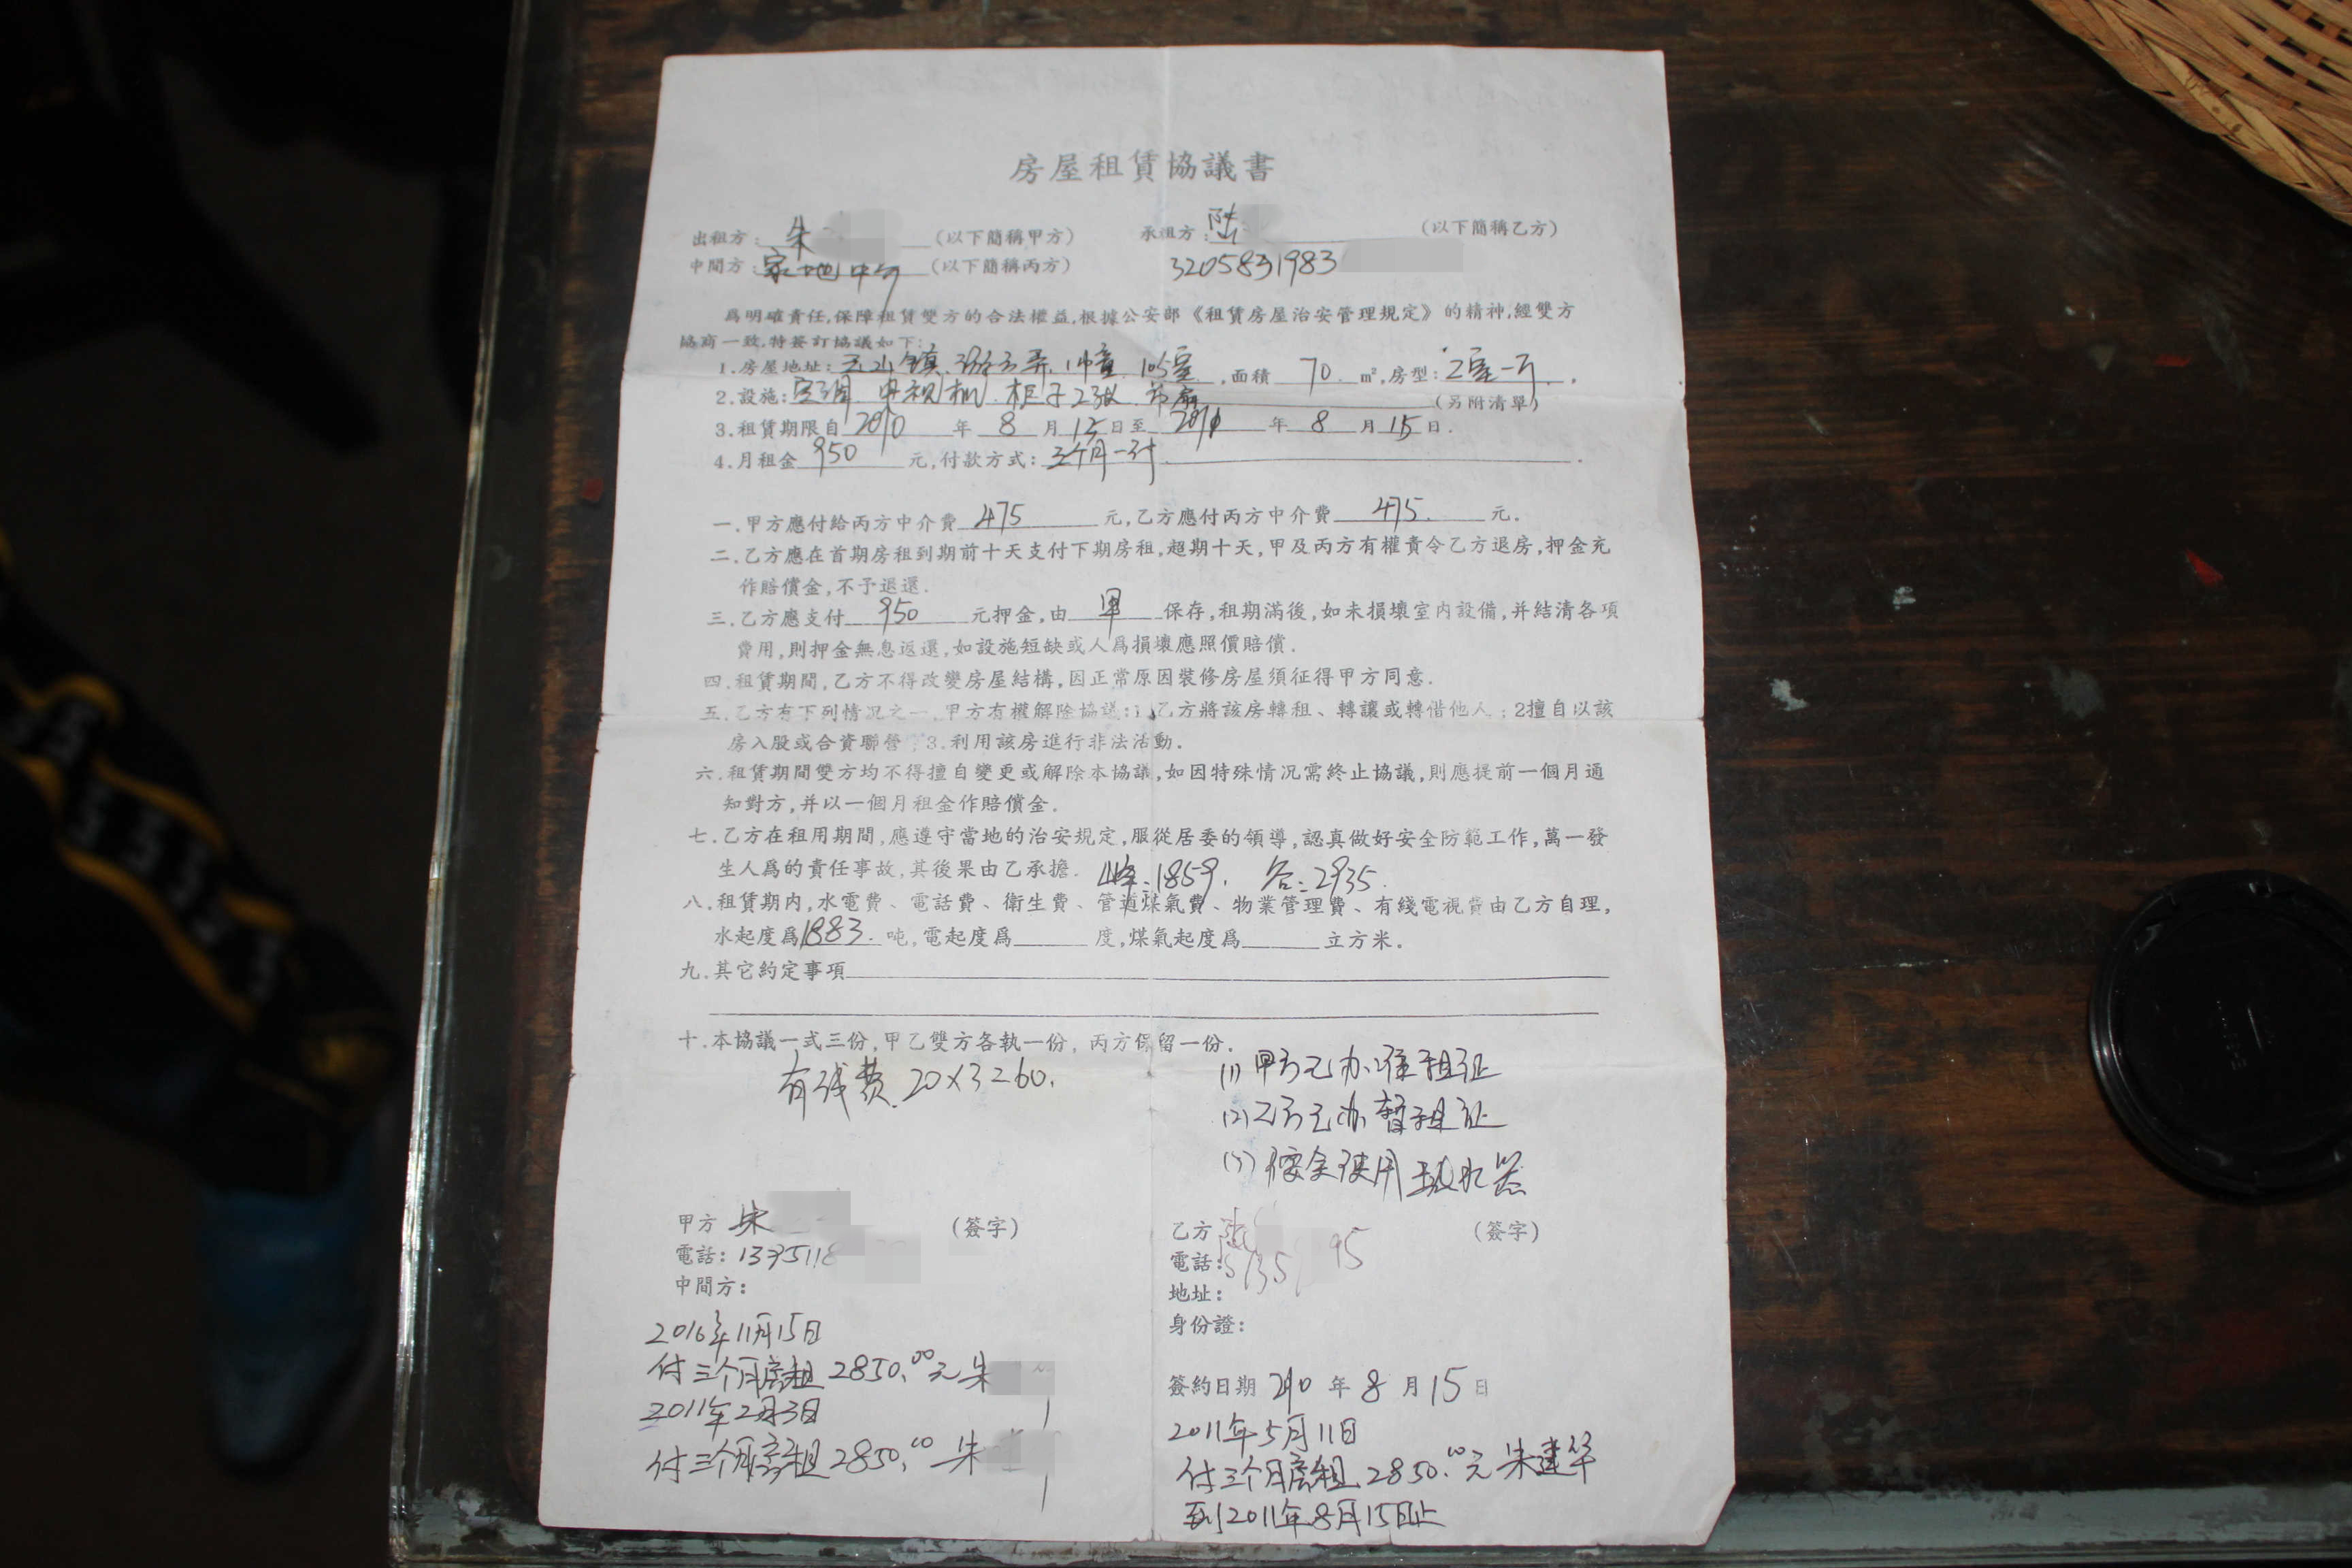 房屋租賃協議書
出租方: 朱 (以下簡稱甲方) 承租方: 陆 (以下簡稱乙方)
中間方: 家地中介 (以下簡稱丙方) 3205831983
爲明確責任,保障租賃雙方的合法權益,根據公安部《租賃房屋治安管理規定》的精神,經雙方
協商一致,特簽訂協議如下:
1.房屋地址: 玉山镇 105室 ,面積 70. m²,房型: 2室一厅.
2.設施: 空调. 电视机. 柜子2张. (另附清單)
3.租賃期限自 2010 年 8 月 15 日至 年 8 月 15 日.
4.月租金 950 元,付款方式: 三个月一付.
一.甲方應付給丙方中介費 475 元,乙方應付丙方中介費 475. 元.
二.乙方應在首期房租到期前十天支付下期房租,超期十天,甲及丙方有權責令乙方退房,押金充
作賠償金,不予退還.
三.乙方應支付 950 元押金,由 甲 保存,租期滿後,如未損壞室内設備,并結清各項
費用,則押金無息返還,如設施短缺或人爲損壞應照價賠償.
四.租賃期間,乙方不得改變房屋結構,因正常原因裝修房屋須征得甲方同意.
五.乙方有下列情况之一,甲方有權解除協議:1.乙方將該房轉租、轉讓或轉借他人;2擅自以該
房入股或合資聯營;3.利用該房進行非法活動.
六.租賃期間雙方均不得擅自變更或解除本協議,如因特殊情况需終止協議,則應提前一個月通
知對方,并以一個月租金作賠償金.
七.乙方在租用期間,應遵守當地的治安規定,服從居委的領導,認真做好安全防範工作,萬一發
生人爲的責任事故,其後果由乙承擔. 峰:1859. 谷:2935.
八.租賃期内,水電費、電話費、衛生費、管道煤氣費、物業管理費、有綫電視費由乙方自理,
水起度爲1883. 吨,電起度爲 度,煤氣起度爲 立方米.
九.其它約定事項
十.本協議一式三份,甲乙雙方各執一份,丙方保留一份.
有线费.20×3=60.
(1) 甲方已办 租证
(2) 乙方已办暂租证
(3) 安全使用 水器
甲方 朱 (簽字)
電話: 1395118
中間方:
乙方 陆 (簽字)
電話: 95
地址:
身份證:
2010年11月15日
付三个月房租 2850.00元 朱
2011年2月3日
付三个月房租 2850.00 朱
簽約日期 2010 年 8 月 15 日
2011年5月11日
付三个月房租.2850.00元 朱建华
到2011年8月15日止